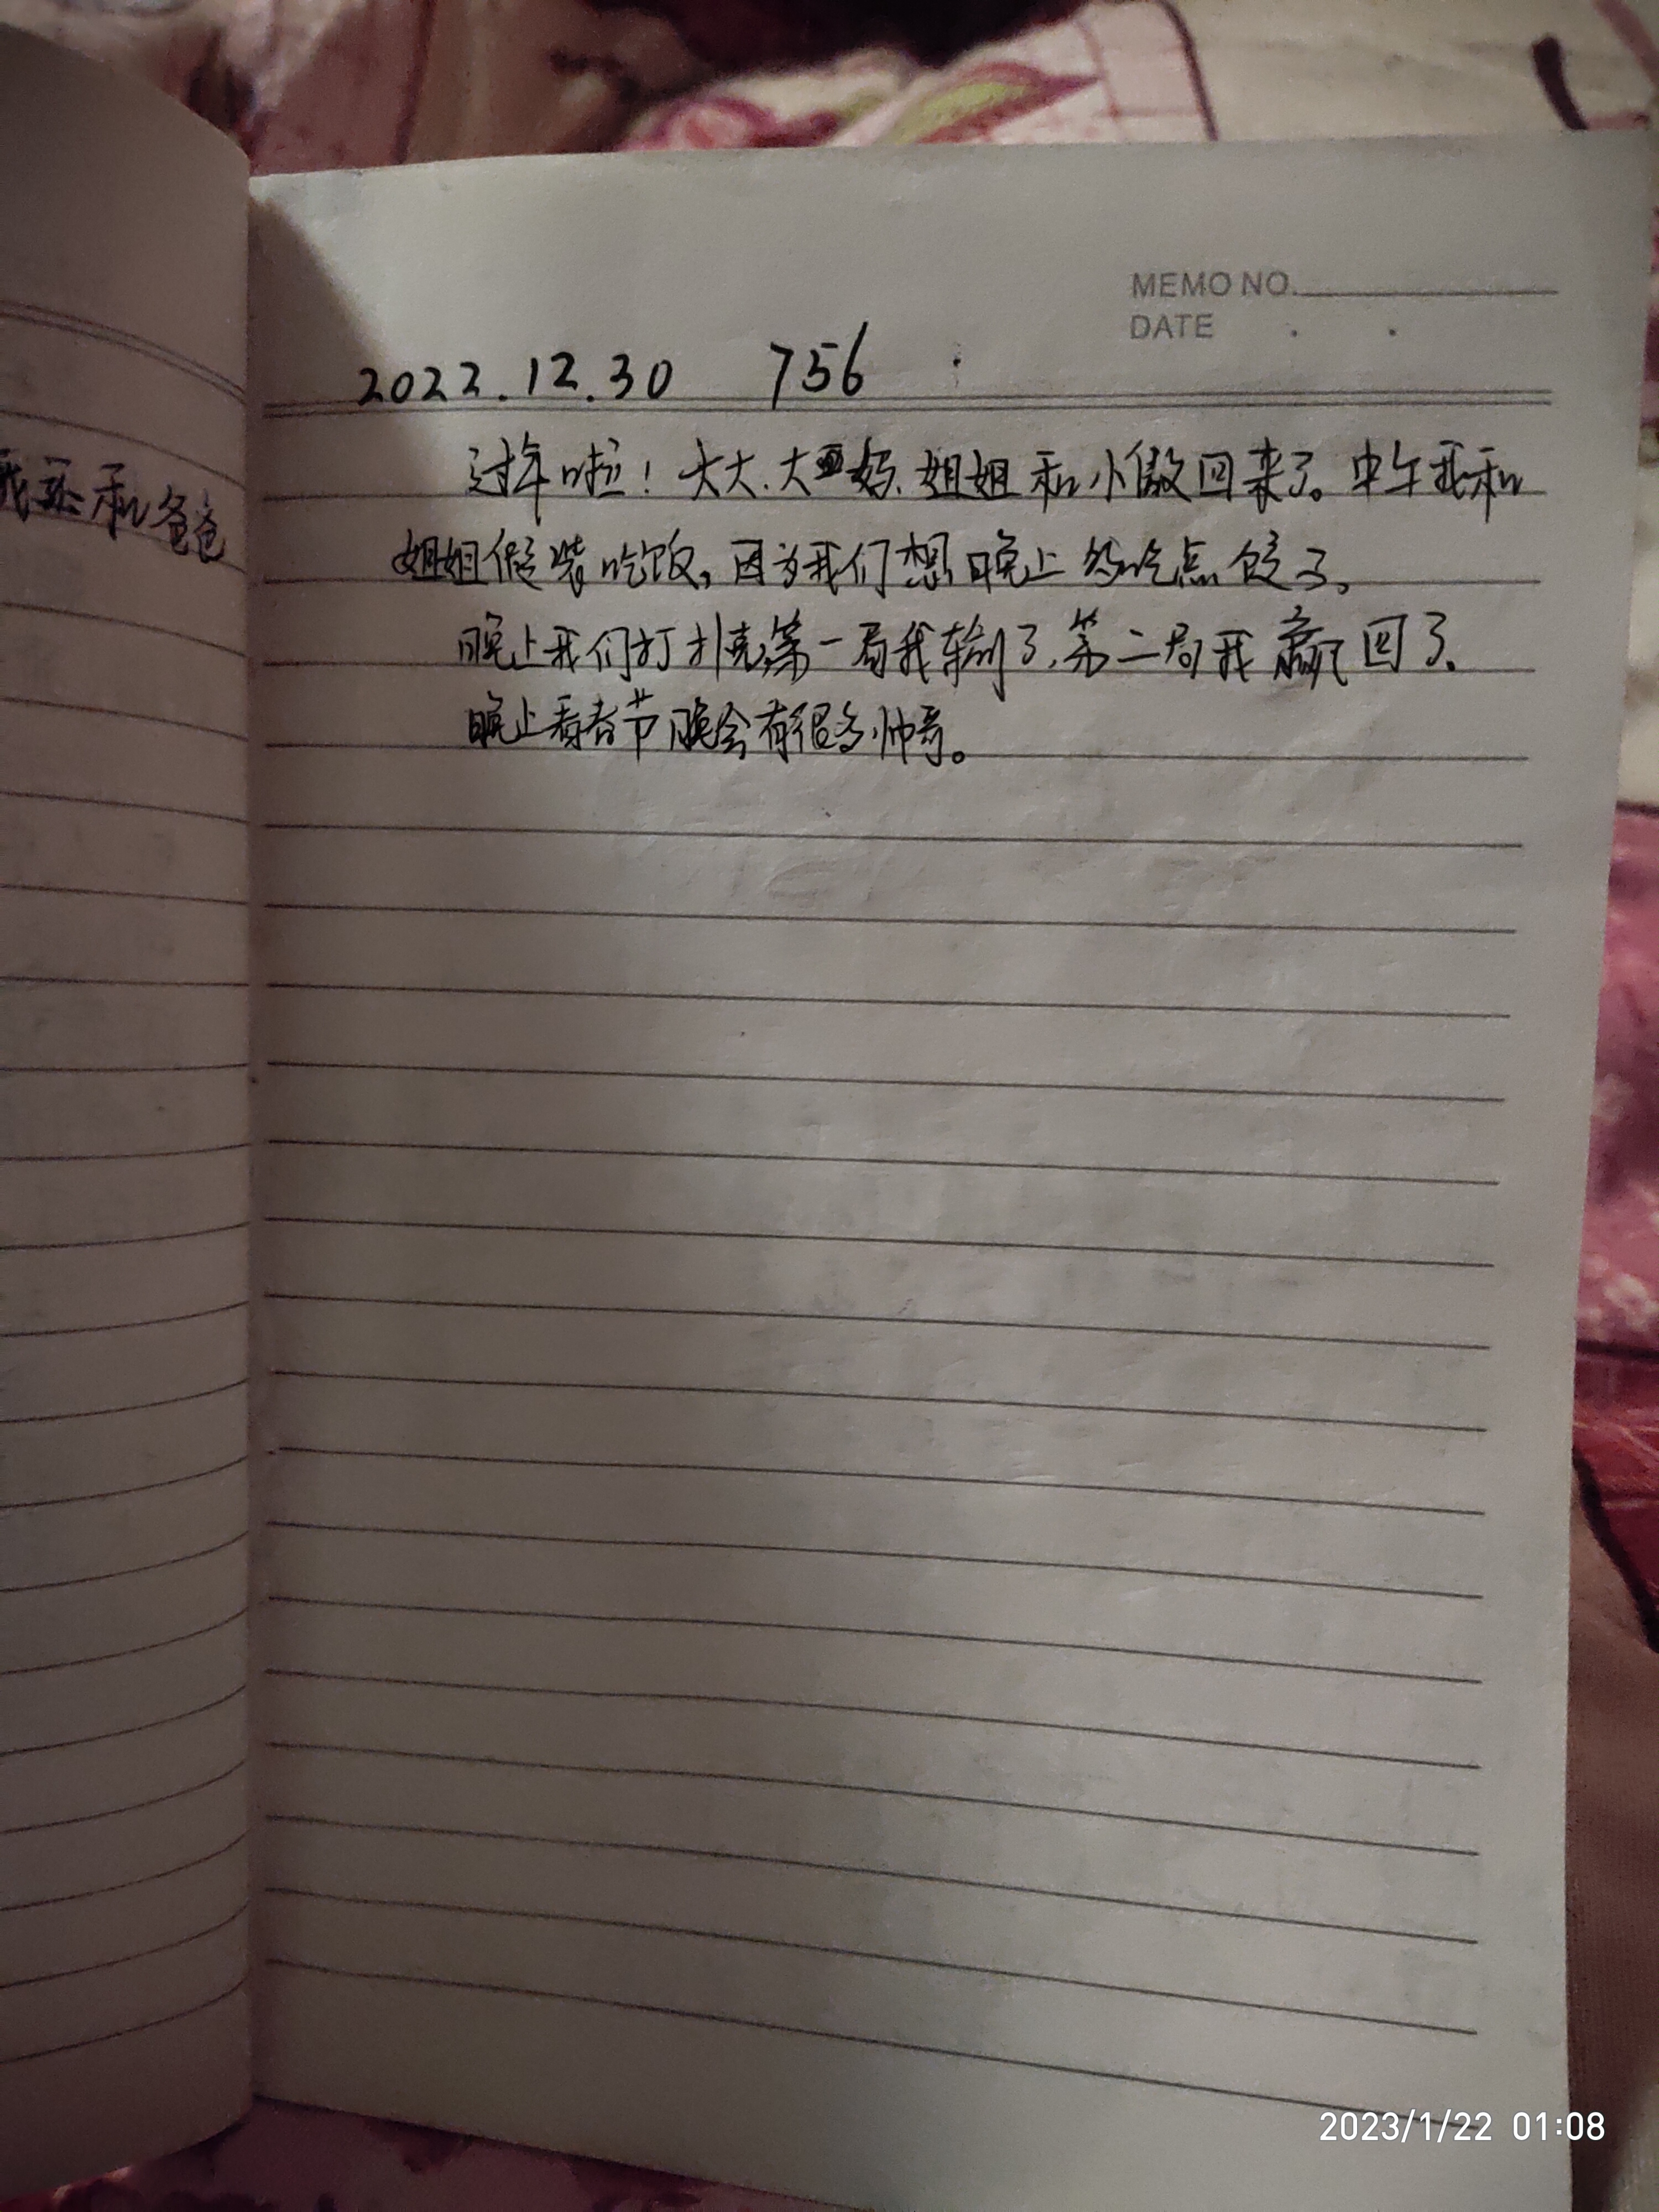 我还和爸爸
MEMO NO.
DATE . .
2022.12.30 756
过年啦！大大、大妈、姐姐和小傲回来了。中午我和
姐姐假装吃饭，因为我们想晚上多吃点饺子。
晚上我们打扑克，第一局我输了，第二局我赢回了。
晚上看春节晚会有很多帅哥。
2023/1/22 01:08